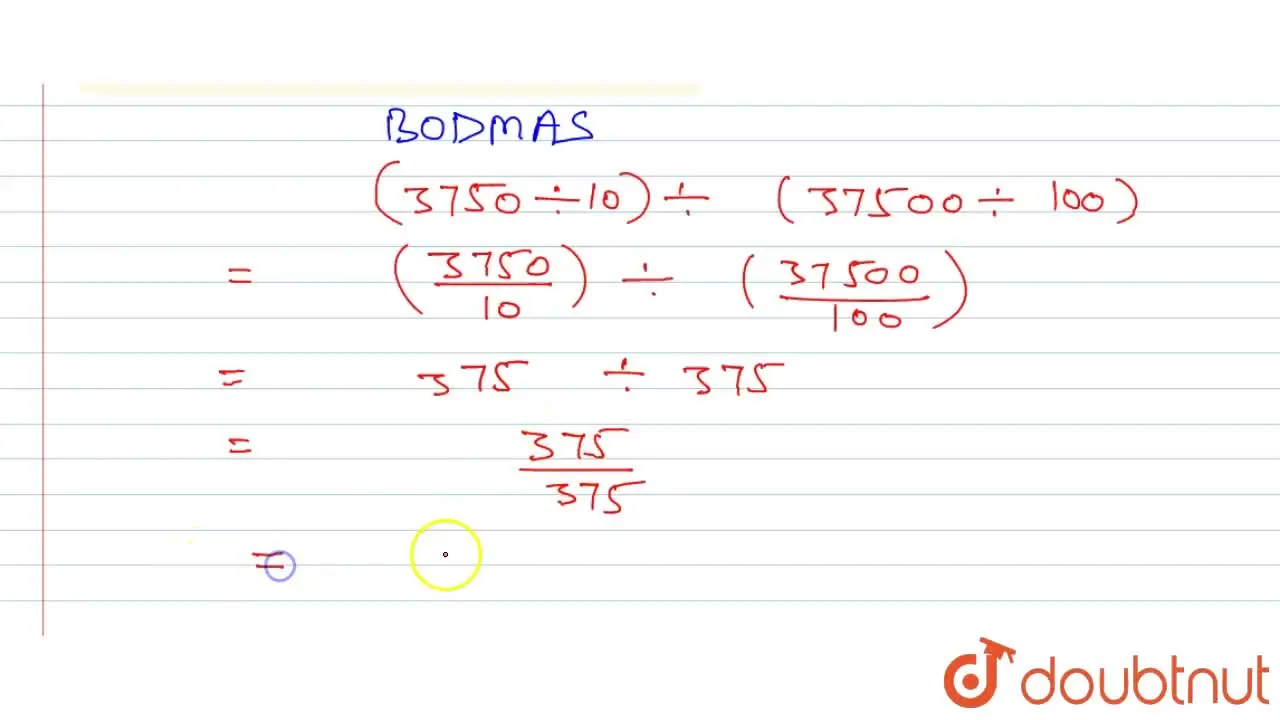 BODMAS
(3750 ÷ 10) ÷ (37500 ÷ 100)
= (3750/10) ÷ (37500/100)
= 375 ÷ 375
= 375/375
=
doubtnut